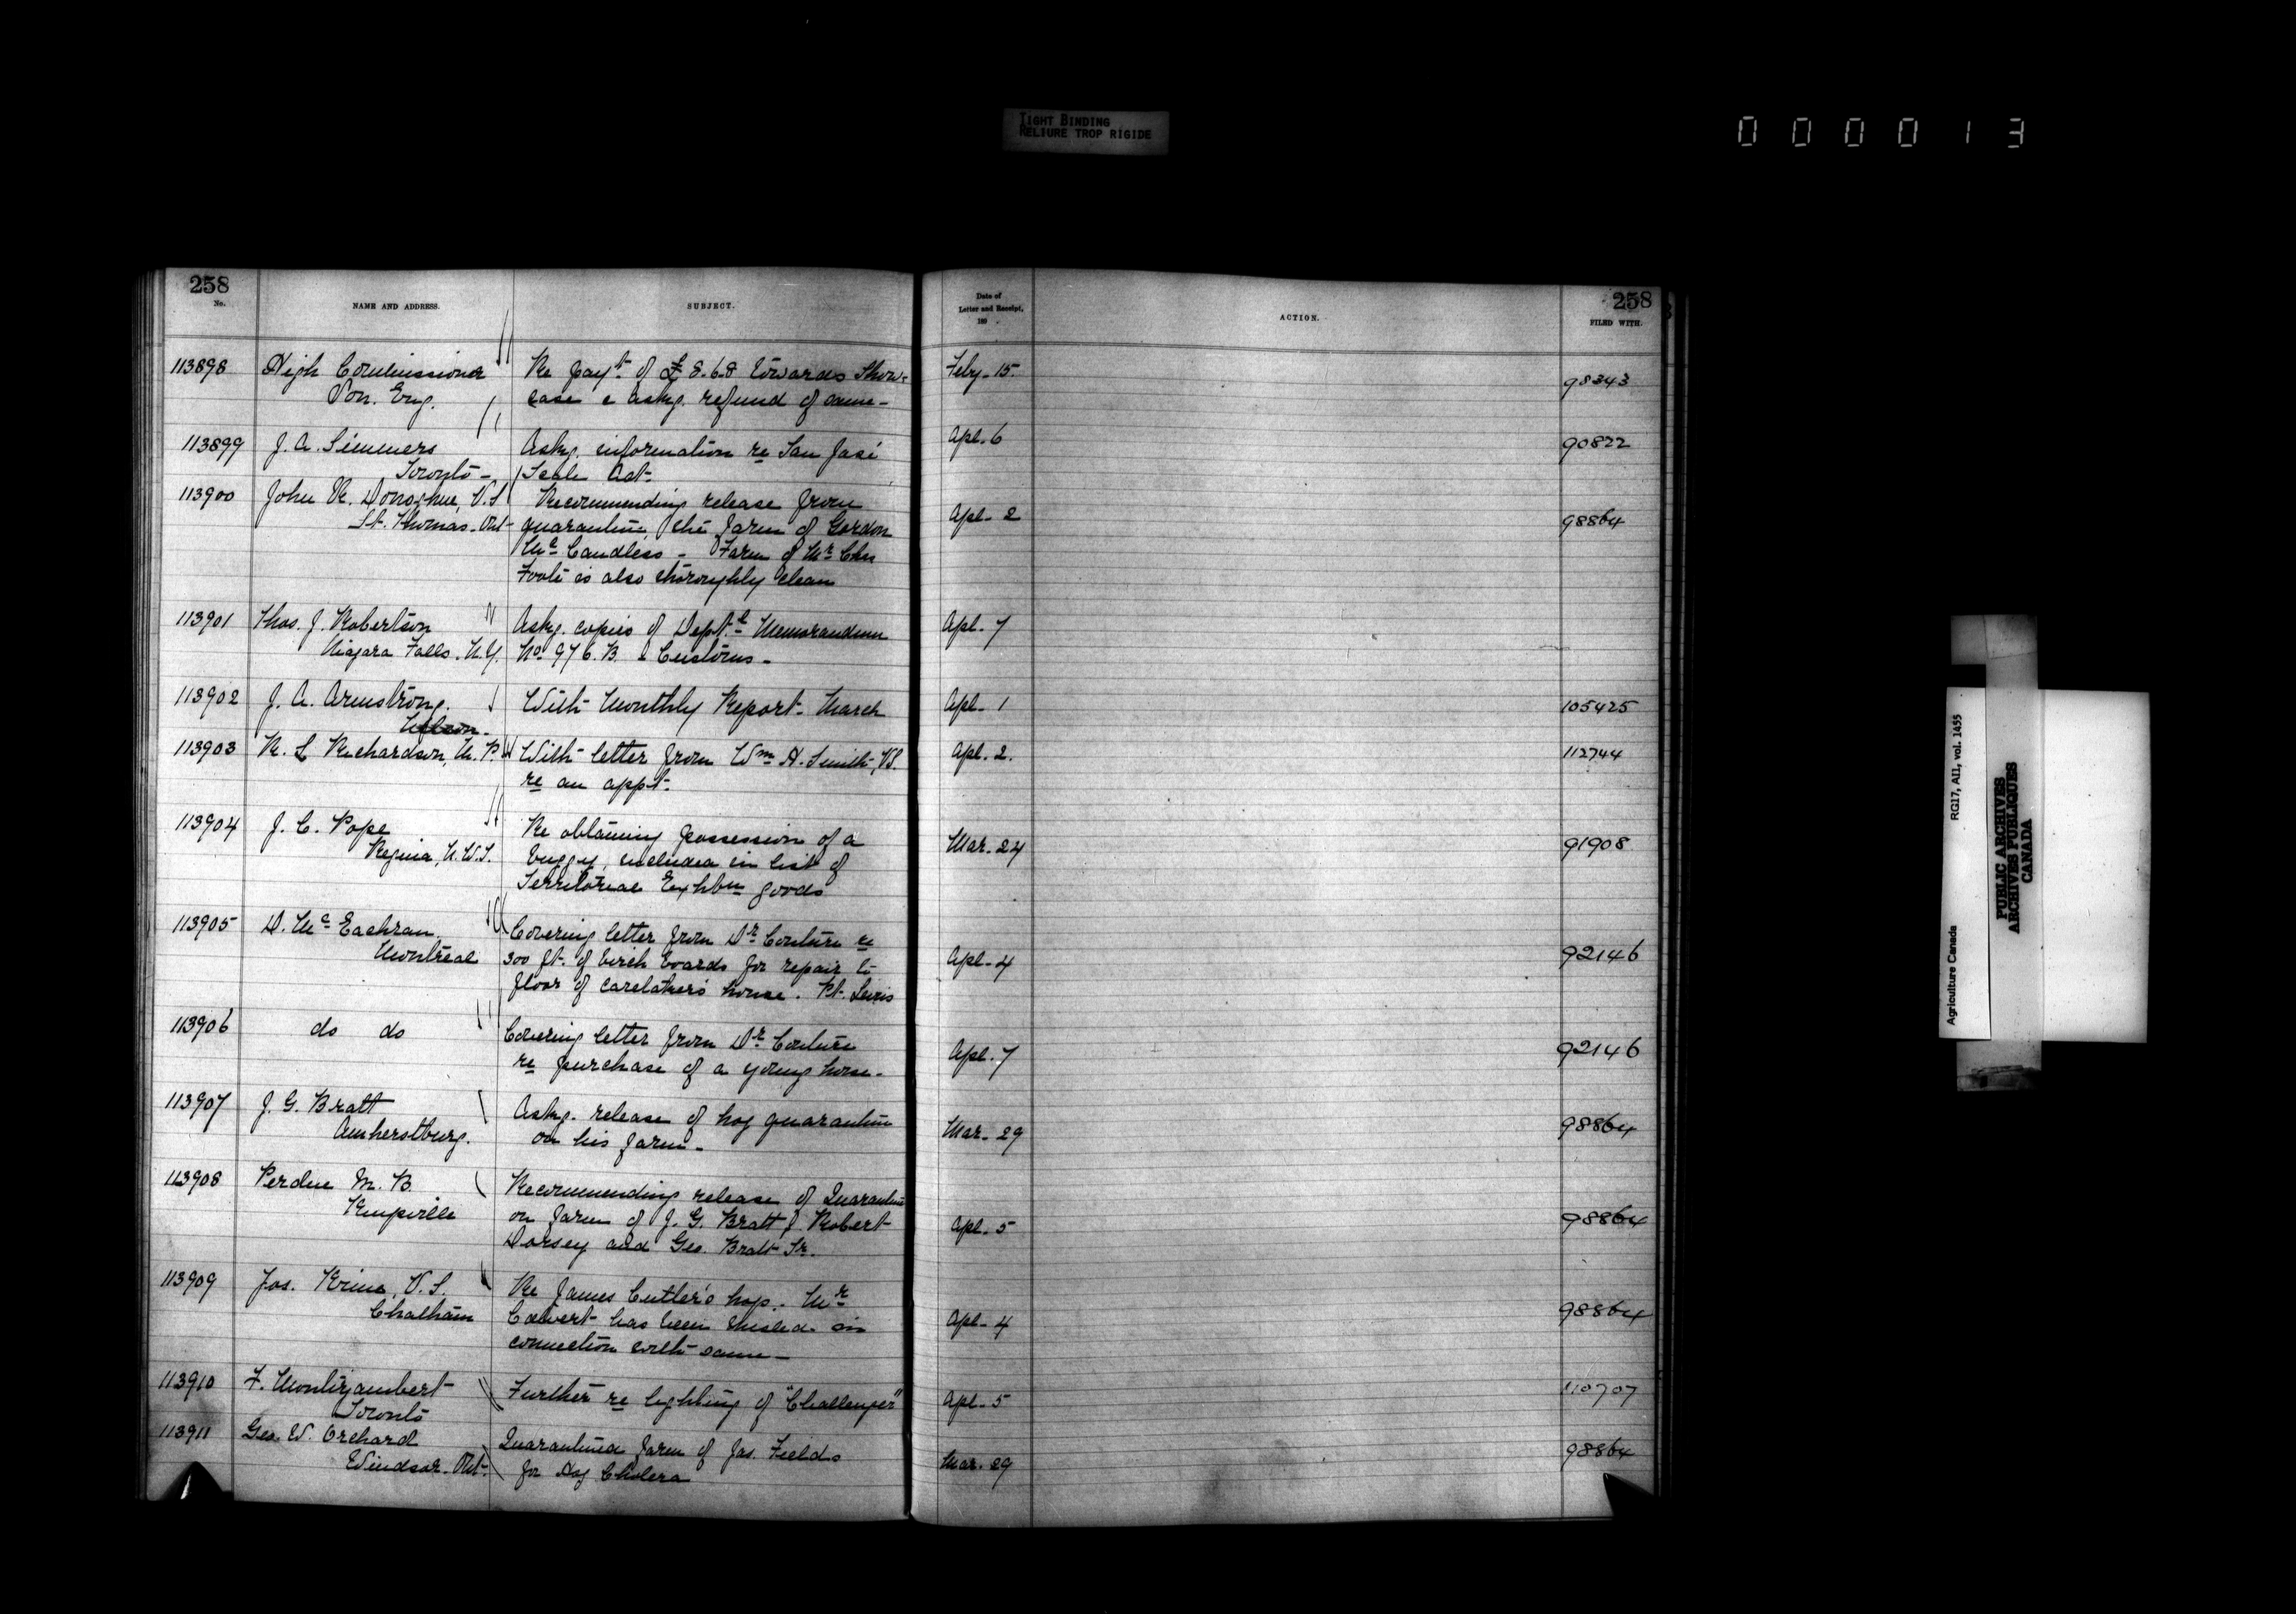 TIGHT BINDING
RELIURE TROP RIGIDE
000013
258
No.
NAME AND ADDRESS.
SUBJECT.
Date of
Letter and Receipt,
189 .
ACTION.
258
FILED WITH.
113898 High Commissioner Re payt. of £8-6-8 towards Show- Feby. 15. 98343
Lon. Eng. case & askg. refund of same -
113899 J. A. Simmers Askg. information re San José Apl. 6 90822
Toronto - Scale Act -
113900 John R. Donoghue, V.S Recommending release from Apl. 2 98864
St. Thomas. Ont - quarantine, the farm of Gordon
Mc Candless - Farm of Mr Chas
Foote is also thoroughly clean
113901 Thos. J. Robertson Askg. copies of Dept.l Memorandum Apl. 7
Niagara Falls. N.Y. No 976.B. Customs -
113902 J. A. Armstrong. With Monthly Report - March Apl. 1 105425
Nelson.
113903 R. L Richardson, M.P. With letter from Wm H. Smith, VS. Apl. 2. 112744
re an appt.
113904 J. C. Pope Re obtaining possession of a Mar. 24 91908
Regina, N.W.T. buggy, included in list of
Territorial Exhbn goods
113905 D. Mc Eachran Covering letter from Dr Couture re Apl. 4 92146
Montreal 300 ft. of birch boards for repair to
floor of caretaker's house. Pt. Levis
113906 do do Covering letter from Dr Couture Apl. 7 92146
re purchase of a young horse.
113907 J. G. Bratt Askg. release of hog quarantine Mar. 29 98864
Amherstburg. on his farm -
113908 Perdue M. B. Recommending release of Quarantine Apl. 5 98864
Kingsville on farm of J. G. Bratt, Robert
Dorsey and Geo. Bratt Sr.
113909 Jos. Kime, V.S. Re James Cutler's hog. Mr Apl. 4 98864
Chatham Calvert has been misled in
connection with same -
113910 F. Montizambert Further re lighting of "Challenger" Apl. 5 110707
Toronto
113911 Geo. W. Orchard Quarantined farm of Jas. Fields Mar. 29 98864
Windsor. Ont. for Hog Cholera
Agriculture Canada RG17, AII, vol. 1455
PUBLIC ARCHIVES
ARCHIVES PUBLIQUES
CANADA